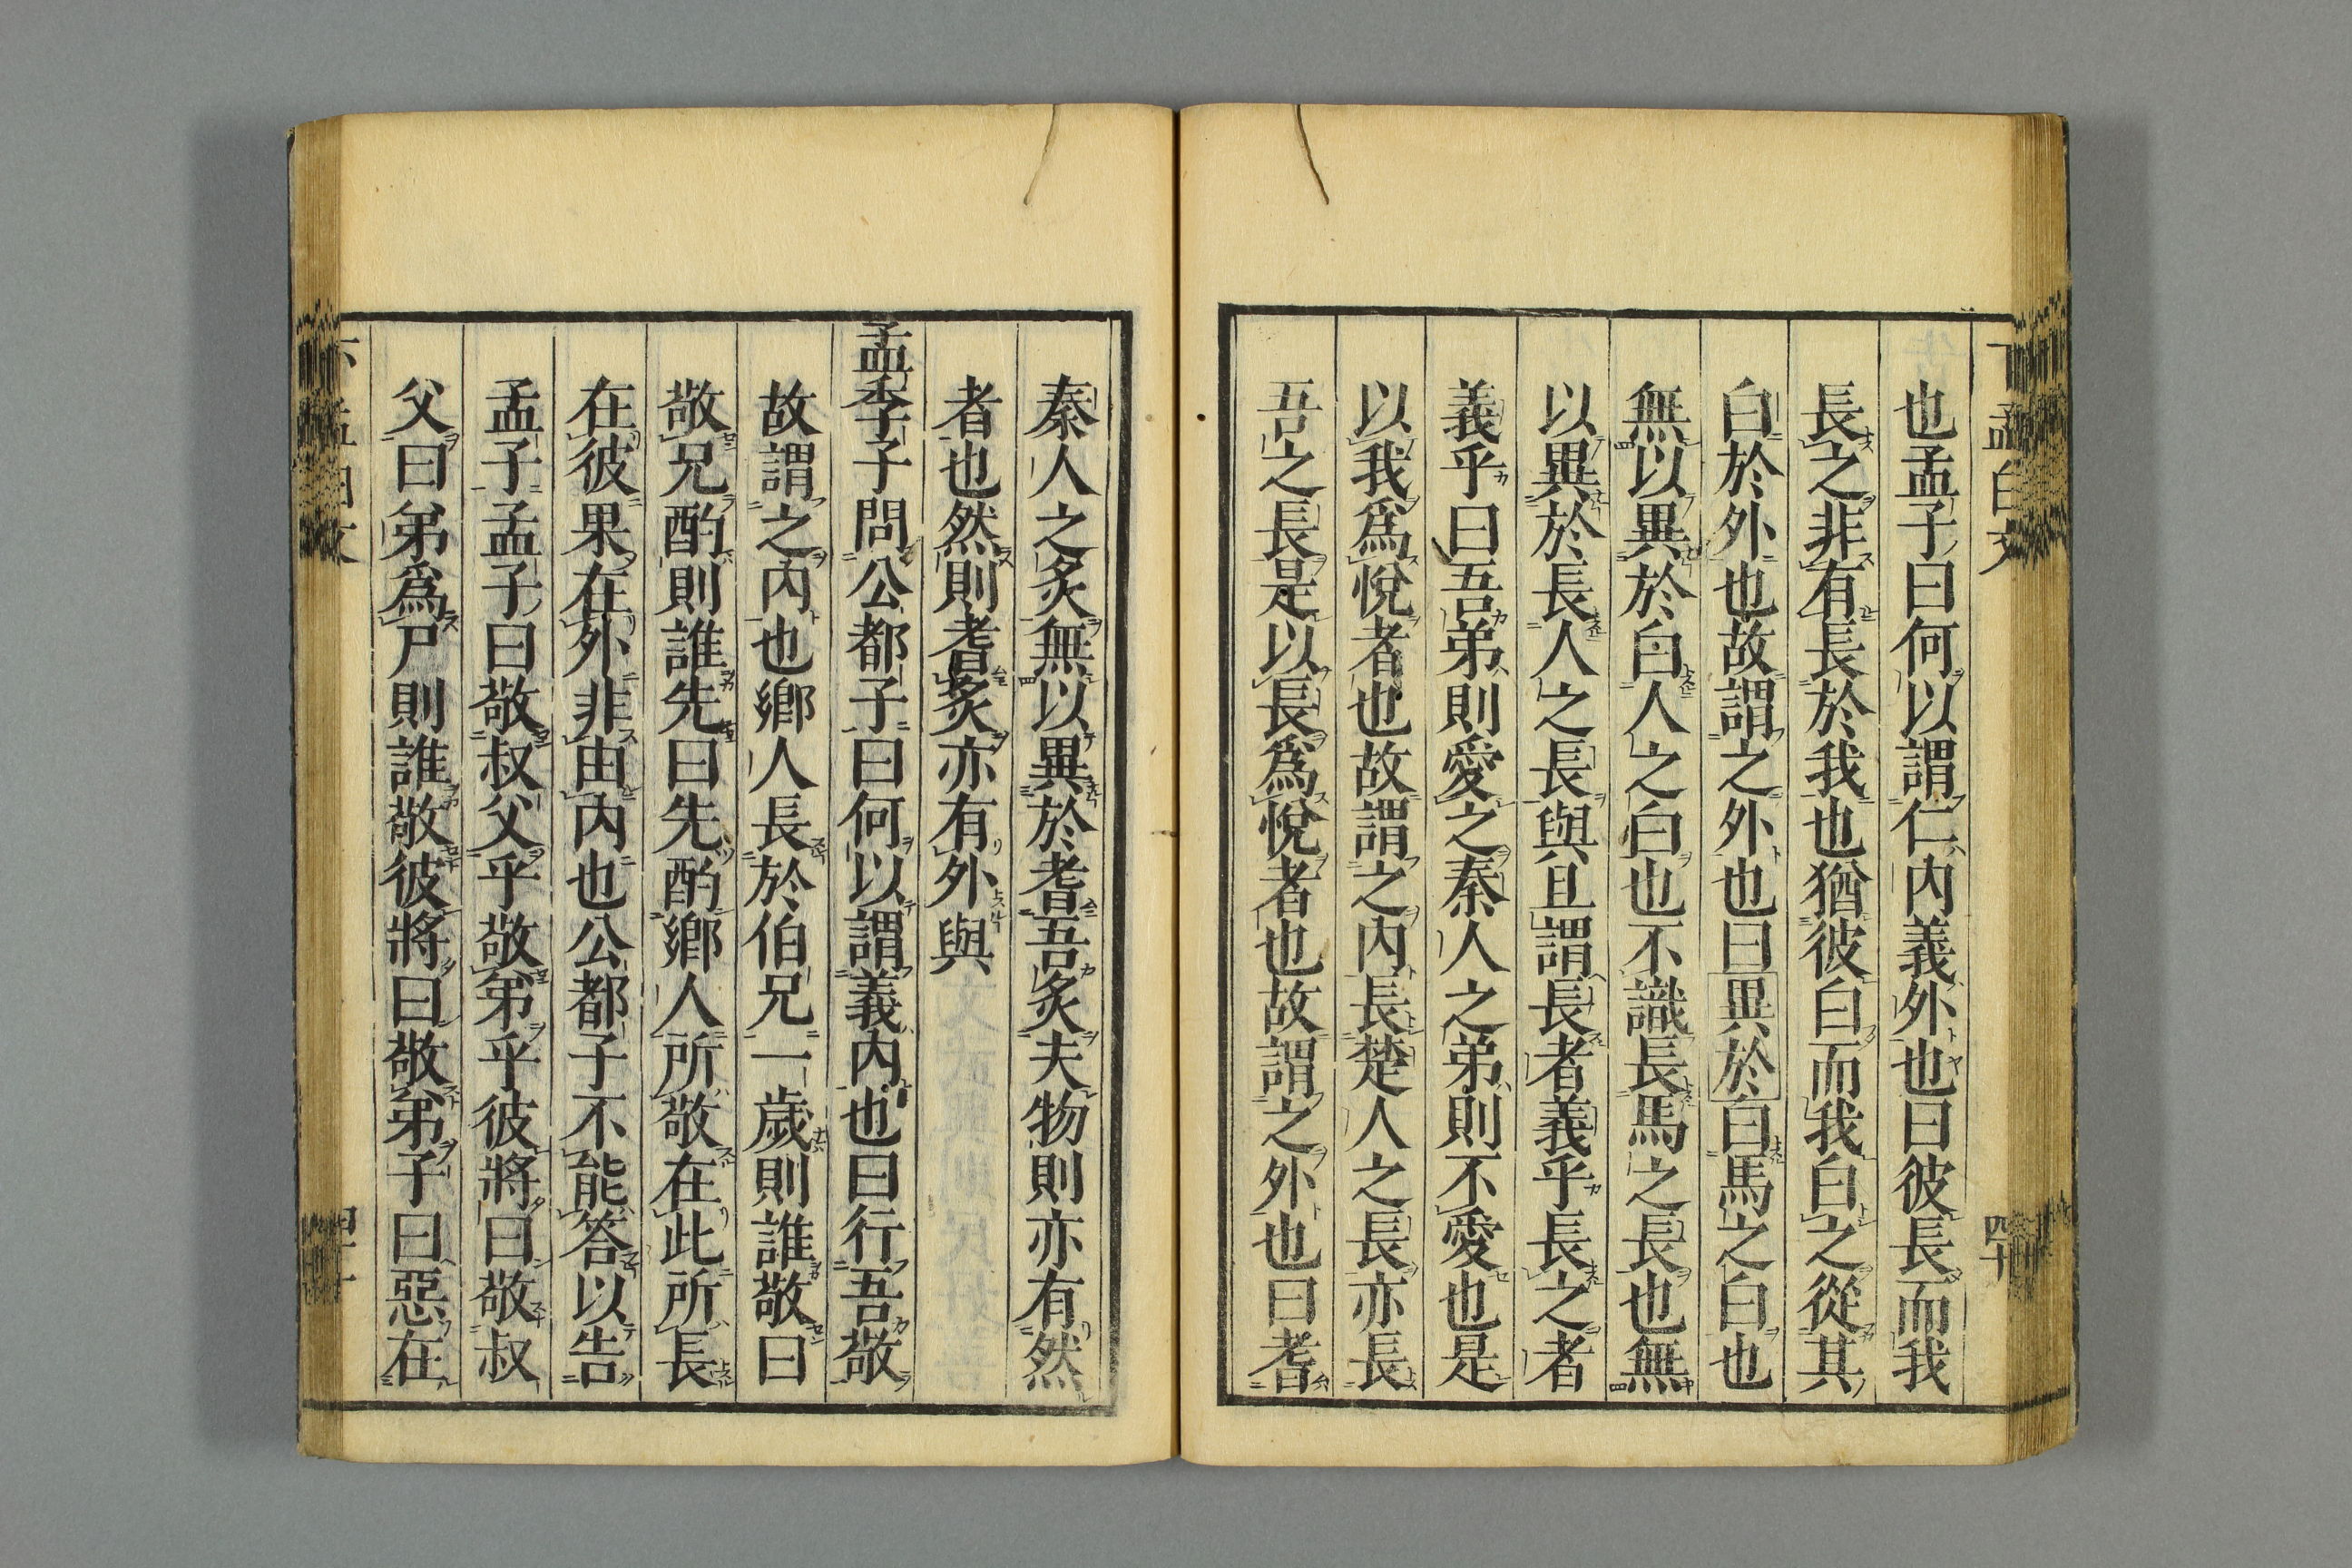 下孟白文
四十
也孟子曰何以謂仁内義外也曰彼長而我
長之非有長於我也猶彼白而我白之從其
白於外也故謂之外也曰異於白馬之白也
無以異於白人之白也不識長馬之長也無
以異於長人之長與且謂長者義乎長之者
義乎曰吾弟則愛之秦人之弟則不愛也是
以我爲悅者也故謂之内長楚人之長亦長
吾之長是以長爲悅者也故謂之外也曰耆
秦人之炙無以異於耆吾炙夫物則亦有然
者也然則耆炙亦有外與
孟季子問公都子曰何以謂義内也曰行吾敬
故謂之内也鄉人長於伯兄一歲則誰敬曰
敬兄酌則誰先曰先酌鄉人所敬在此所長
在彼果在外非由内也公都子不能答以告
孟子孟子曰敬叔父乎敬弟乎彼將曰敬叔
父曰弟爲尸則誰敬彼將曰敬弟子曰惡在